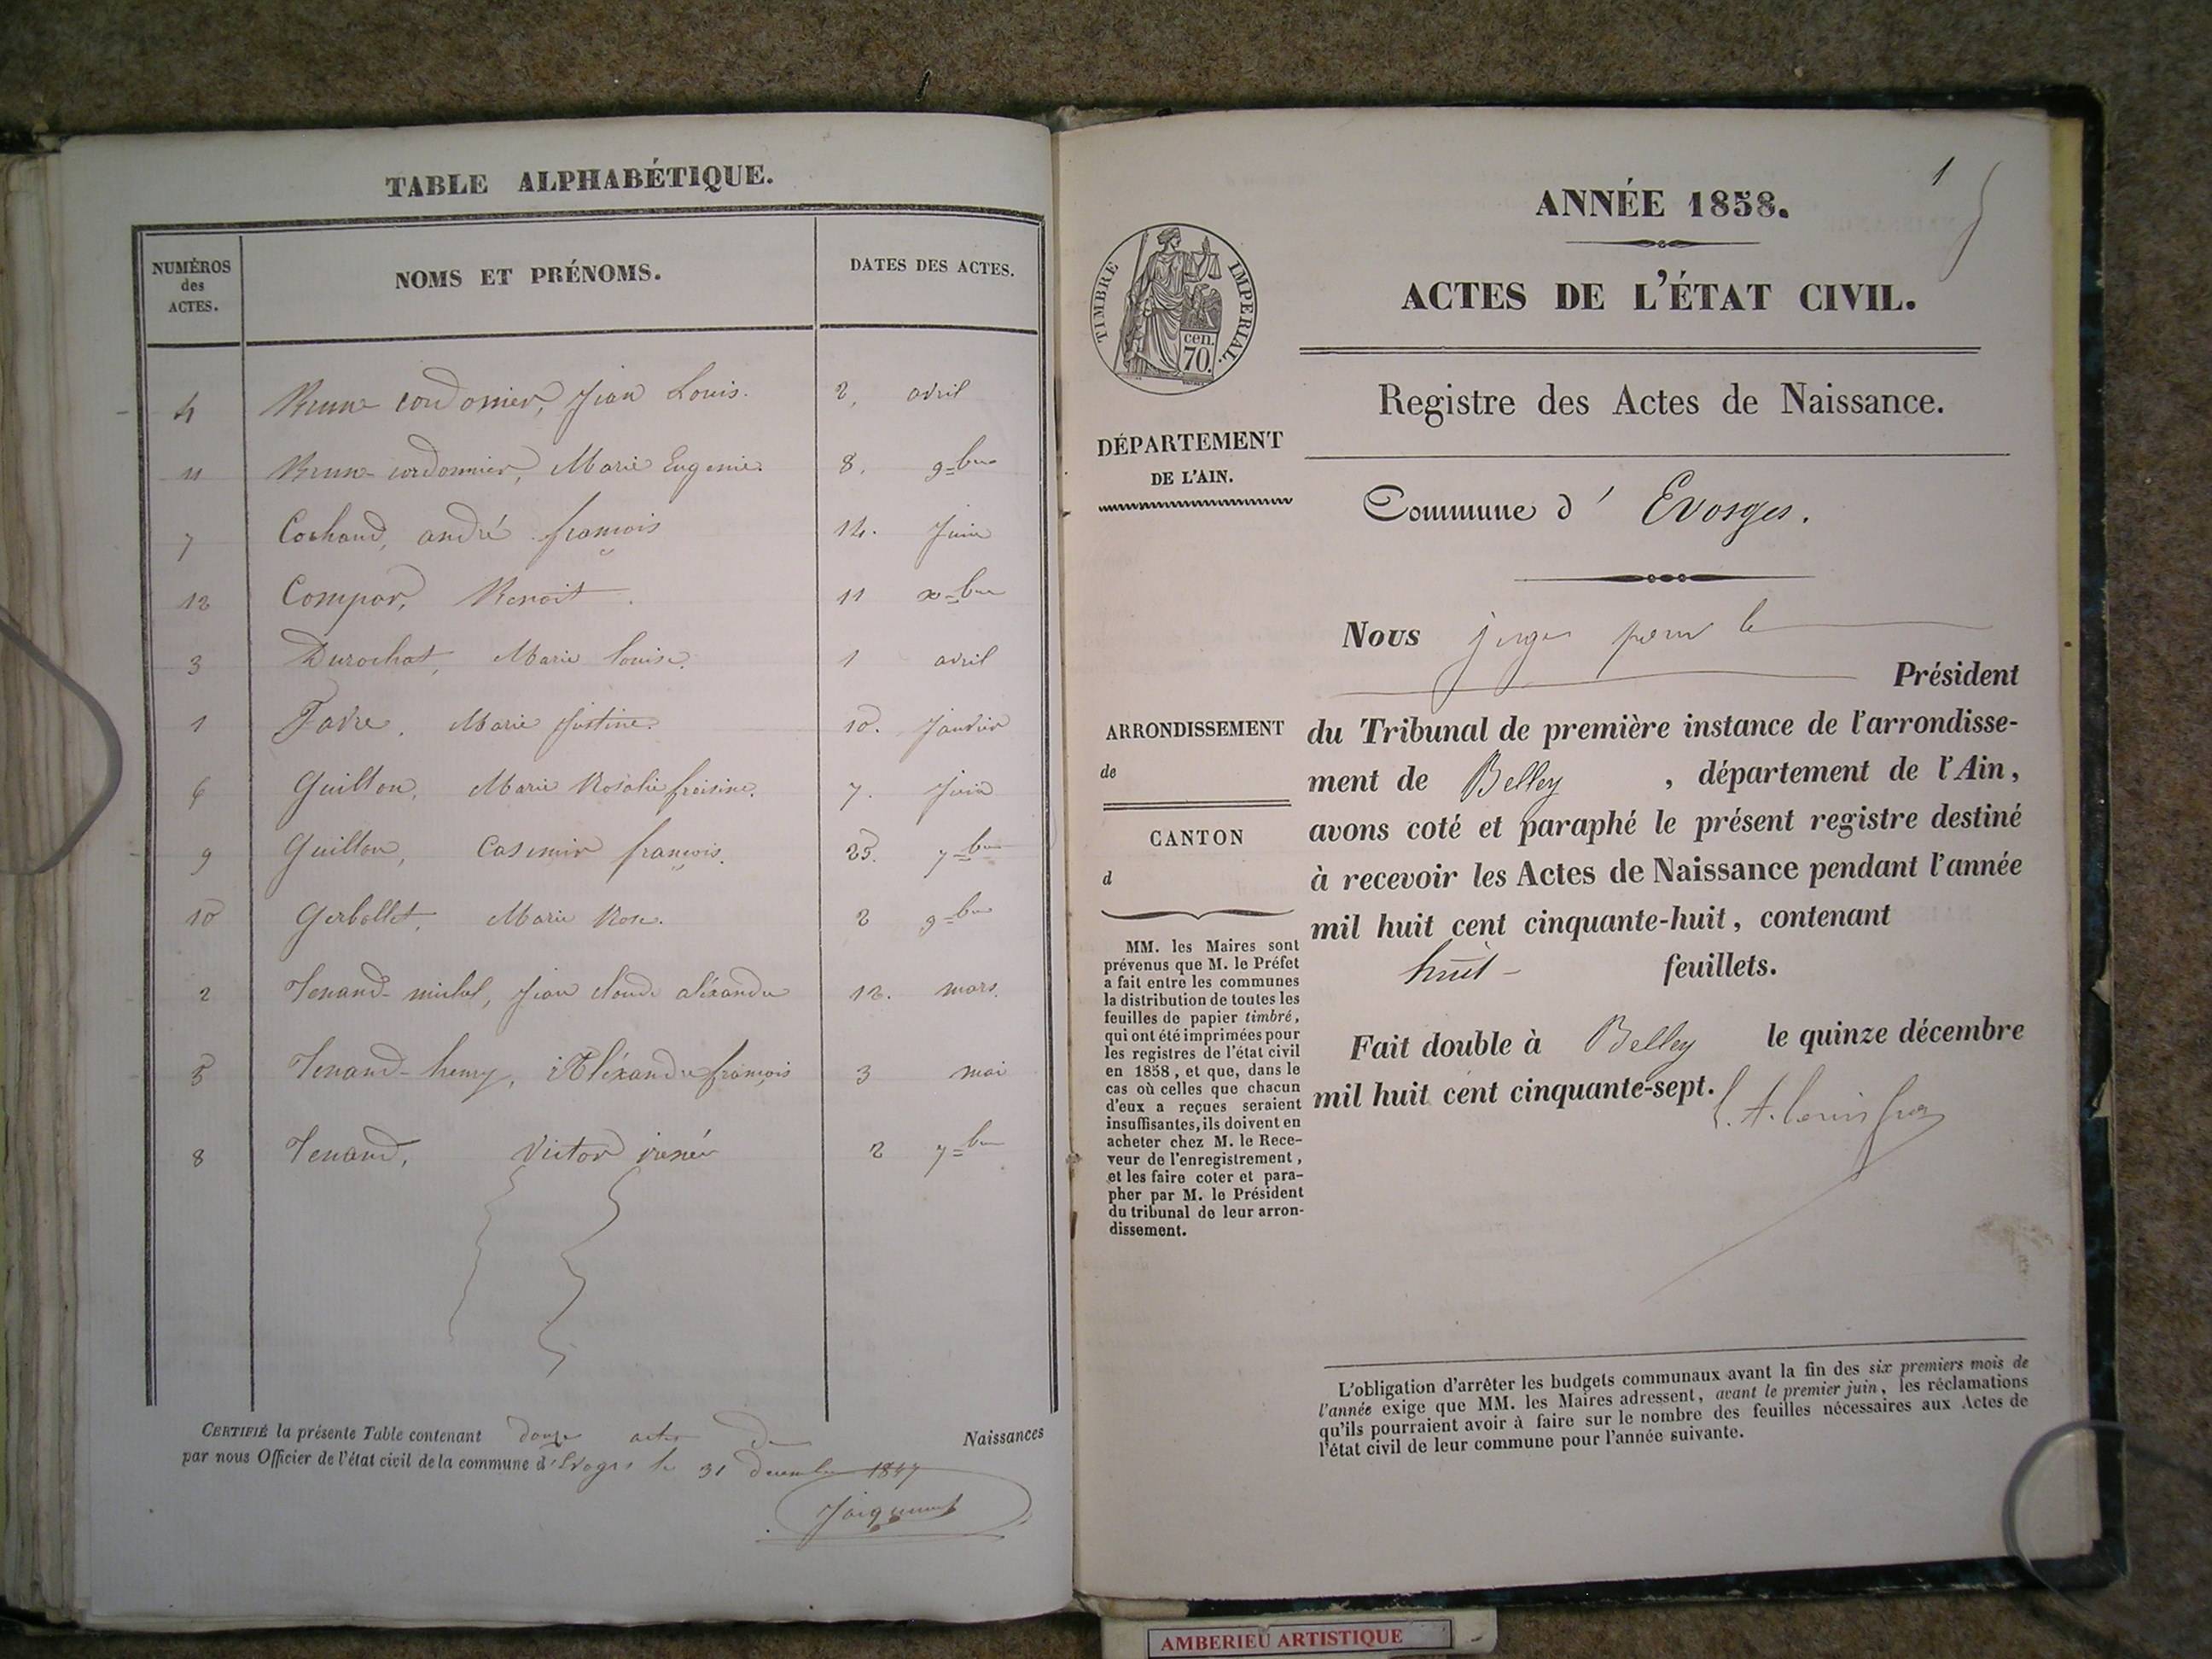 TABLE ALPHABÉTIQUE.
NUMÉROS des ACTES. NOMS ET PRÉNOMS. DATES DES ACTES.
4 Brun-cordonier, Jean Louis. 2, avril
11 Brun-cordonnier, Marie Eugenie. 8, 9=bre
7 Cochand, andré françois 14. Juin
12 Compar, Benoit. 11 x=bre
3 Durochat, Marie Louise. 1 avril
1 Favre, Marie Justine. 10. Janvier
6 Guillon, Marie Rosalie 7. Juin
9 Guillon, Casimir françois. 25. 7=bre
10 Gerbollet, Marie Rose. 2 9=bre
2 Tenand-michel, Jean claude aléxandre 12. mars.
5 Tenand-henry, Aléxandre françois 3 mai
8 Tenand, Victor 2 7=bre
CERTIFIÉ la présente Table contenant douze actes de Naissances
par nous Officier de l'état civil de la commune d'Evoges le 31 decembre
1
ANNÉE 1858.
ACTES DE L'ÉTAT CIVIL.
Registre des Actes de Naissance.
TIMBRE IMPERIAL.
cen.
70.
DÉPARTEMENT
DE L'AIN.
Commune d' Evosges.
Nous juge pour le
Président
du Tribunal de première instance de l'arrondisse-
ment de Belley , département de l'Ain,
avons coté et paraphé le présent registre destiné
à recevoir les Actes de Naissance pendant l'année
mil huit cent cinquante-huit, contenant
huit - feuillets.
Fait double à Belley le quinze décembre
mil huit cent cinquante-sept.
ARRONDISSEMENT
de
CANTON
d
MM. les Maires sont
prévenus que M. le Préfet
a fait entre les communes
la distribution de toutes les
feuilles de papier timbré,
qui ont été imprimées pour
les registres de l'état civil
en 1858, et que, dans le
cas où celles que chacun
d'eux a reçues seraient
insuffisantes, ils doivent en
acheter chez M. le Rece-
veur de l'enregistrement,
et les faire coter et para-
pher par M. le Président
du tribunal de leur arron-
dissement.
L'obligation d'arrêter les budgets communaux avant la fin des six premiers mois de
l'année exige que MM. les Maires adressent, avant le premier juin, les réclamations
qu'ils pourraient avoir à faire sur le nombre des feuilles nécessaires aux Actes de
l'état civil de leur commune pour l'année suivante.
AMBERIEU ARTISTIQUE